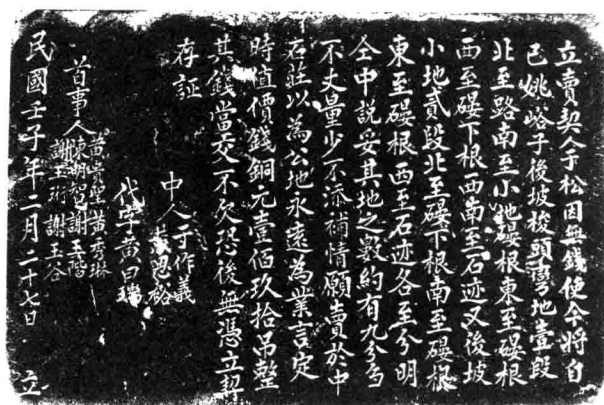 立賣契人于松因無錢使今將自
己姚峪子後坡梭頭彎地壹段
北至路南至小地磉根東至磉根
西至磉下根西南至石迹又後坡
小地貳段北至磉下根南至磉根
東至磉根西至石迹各至分明
仝中說妥其地之數約有九分多
不丈量少不添補情願賣於中
石莊以為公地永遠為業言定
時值價錢銅元壹佰玖拾吊整
其錢當交不欠恐後無憑立契
存証
中人于作義
恩裕
代字黃曰瑞
首事人 黃秀琳
陳朝賀謝玉階
謝玉珩謝玉谷
民國壬子年二月二十七日 立